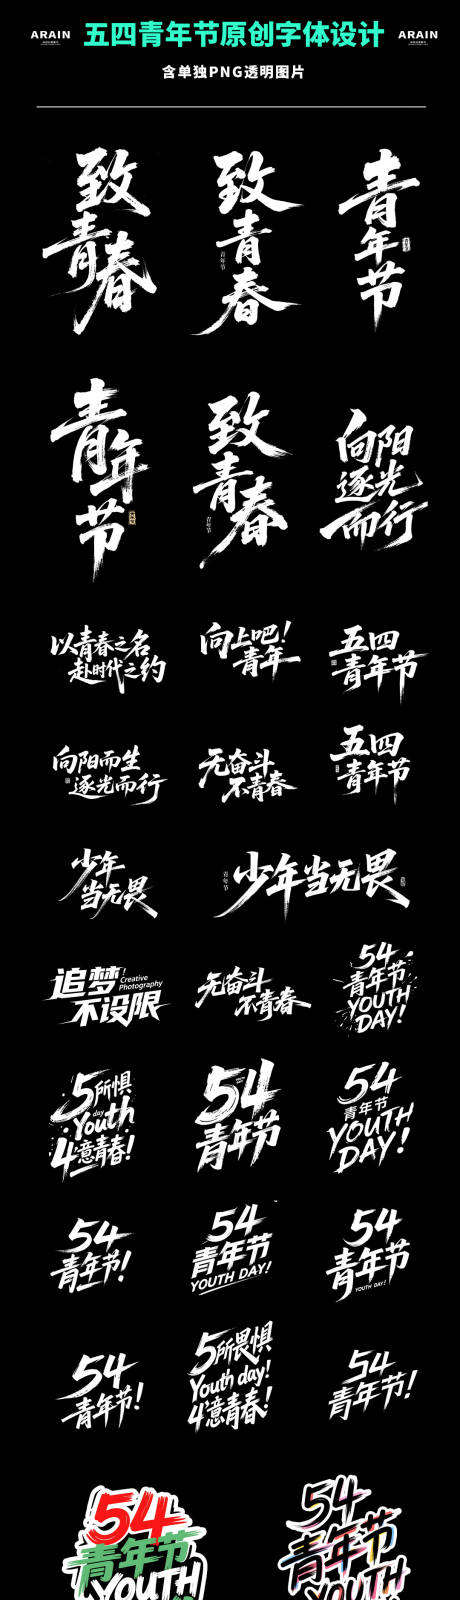 ARAIN
五四青年节原创字体设计
ARAIN
含单独PNG透明图片
致
青
春
致
青
春
青年节
青
年
节
青
年
节
致
青
春
青年节
向阳
逐光
而行
以青春之名
赴时代之约
向上吧!
青年
五四
青年节
向阳而生
逐光而行
无奋斗
不青春
五四
青年节
少年
当无畏
青年节
少年当无畏
追梦
Creative
Photography
不设限
无奋斗
不青春
54
青年节
YOUTH
DAY!
5所惧
day
Youth
4意青春!
54
青年节
54
青年节
YOUTH
DAY!
54
青年节!
54
青年节
YOUTH DAY!
54
青年节
YOUTH DAY!
54
青年节!
5所畏惧
Youth day!
4意青春!
54
青年节!
54
青年节
YOUTH
54
青年节
YOUTH